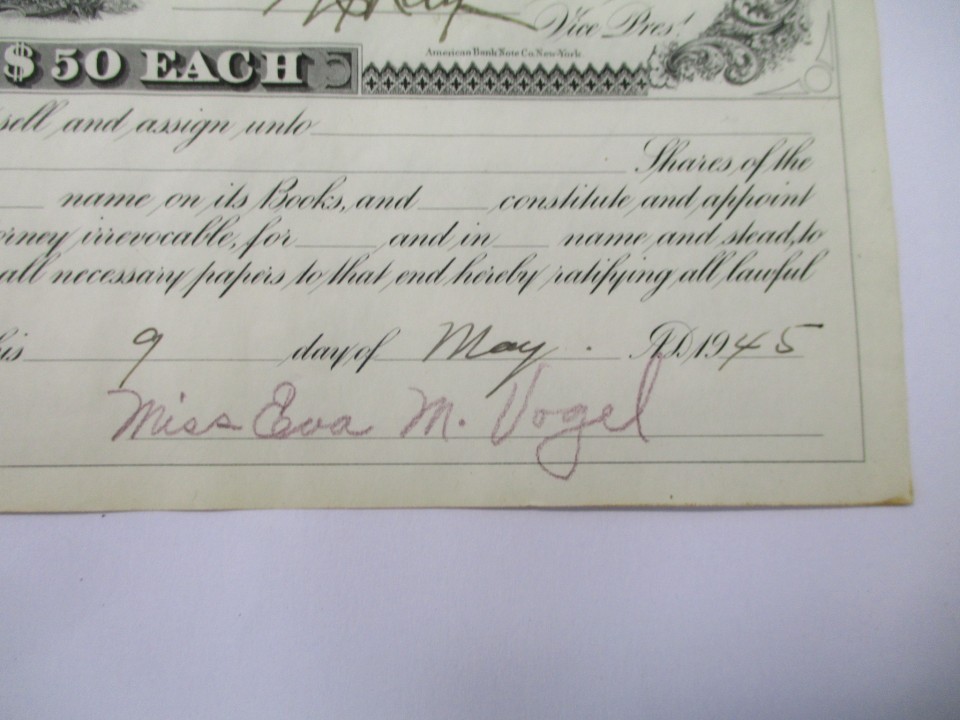 Vice Pres!
$50 EACH
American Bank Note Co. New York.
sell and assign unto
Shares of the
name on its Books, and constitute and appoint
orney irrevocable, for and in name and stead, to
all necessary papers to that end hereby ratifying all lawful
his 9 day of May. A.D. 1945
Miss Eva M. Vogel